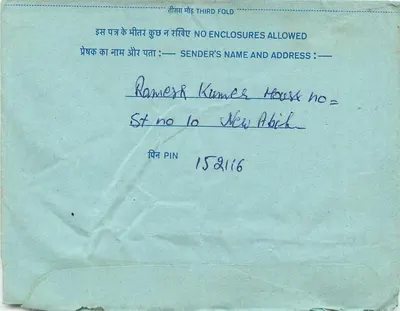 तीसरा मोड़ THIRD FOLD
इस पत्र के भीतर कुछ न रखिए NO ENCLOSURES ALLOWED
प्रेषक का नाम और पता :— SENDER'S NAME AND ADDRESS :—
Ramesh Kumar House no =
St no 10 New Aboh
पिन PIN 152116